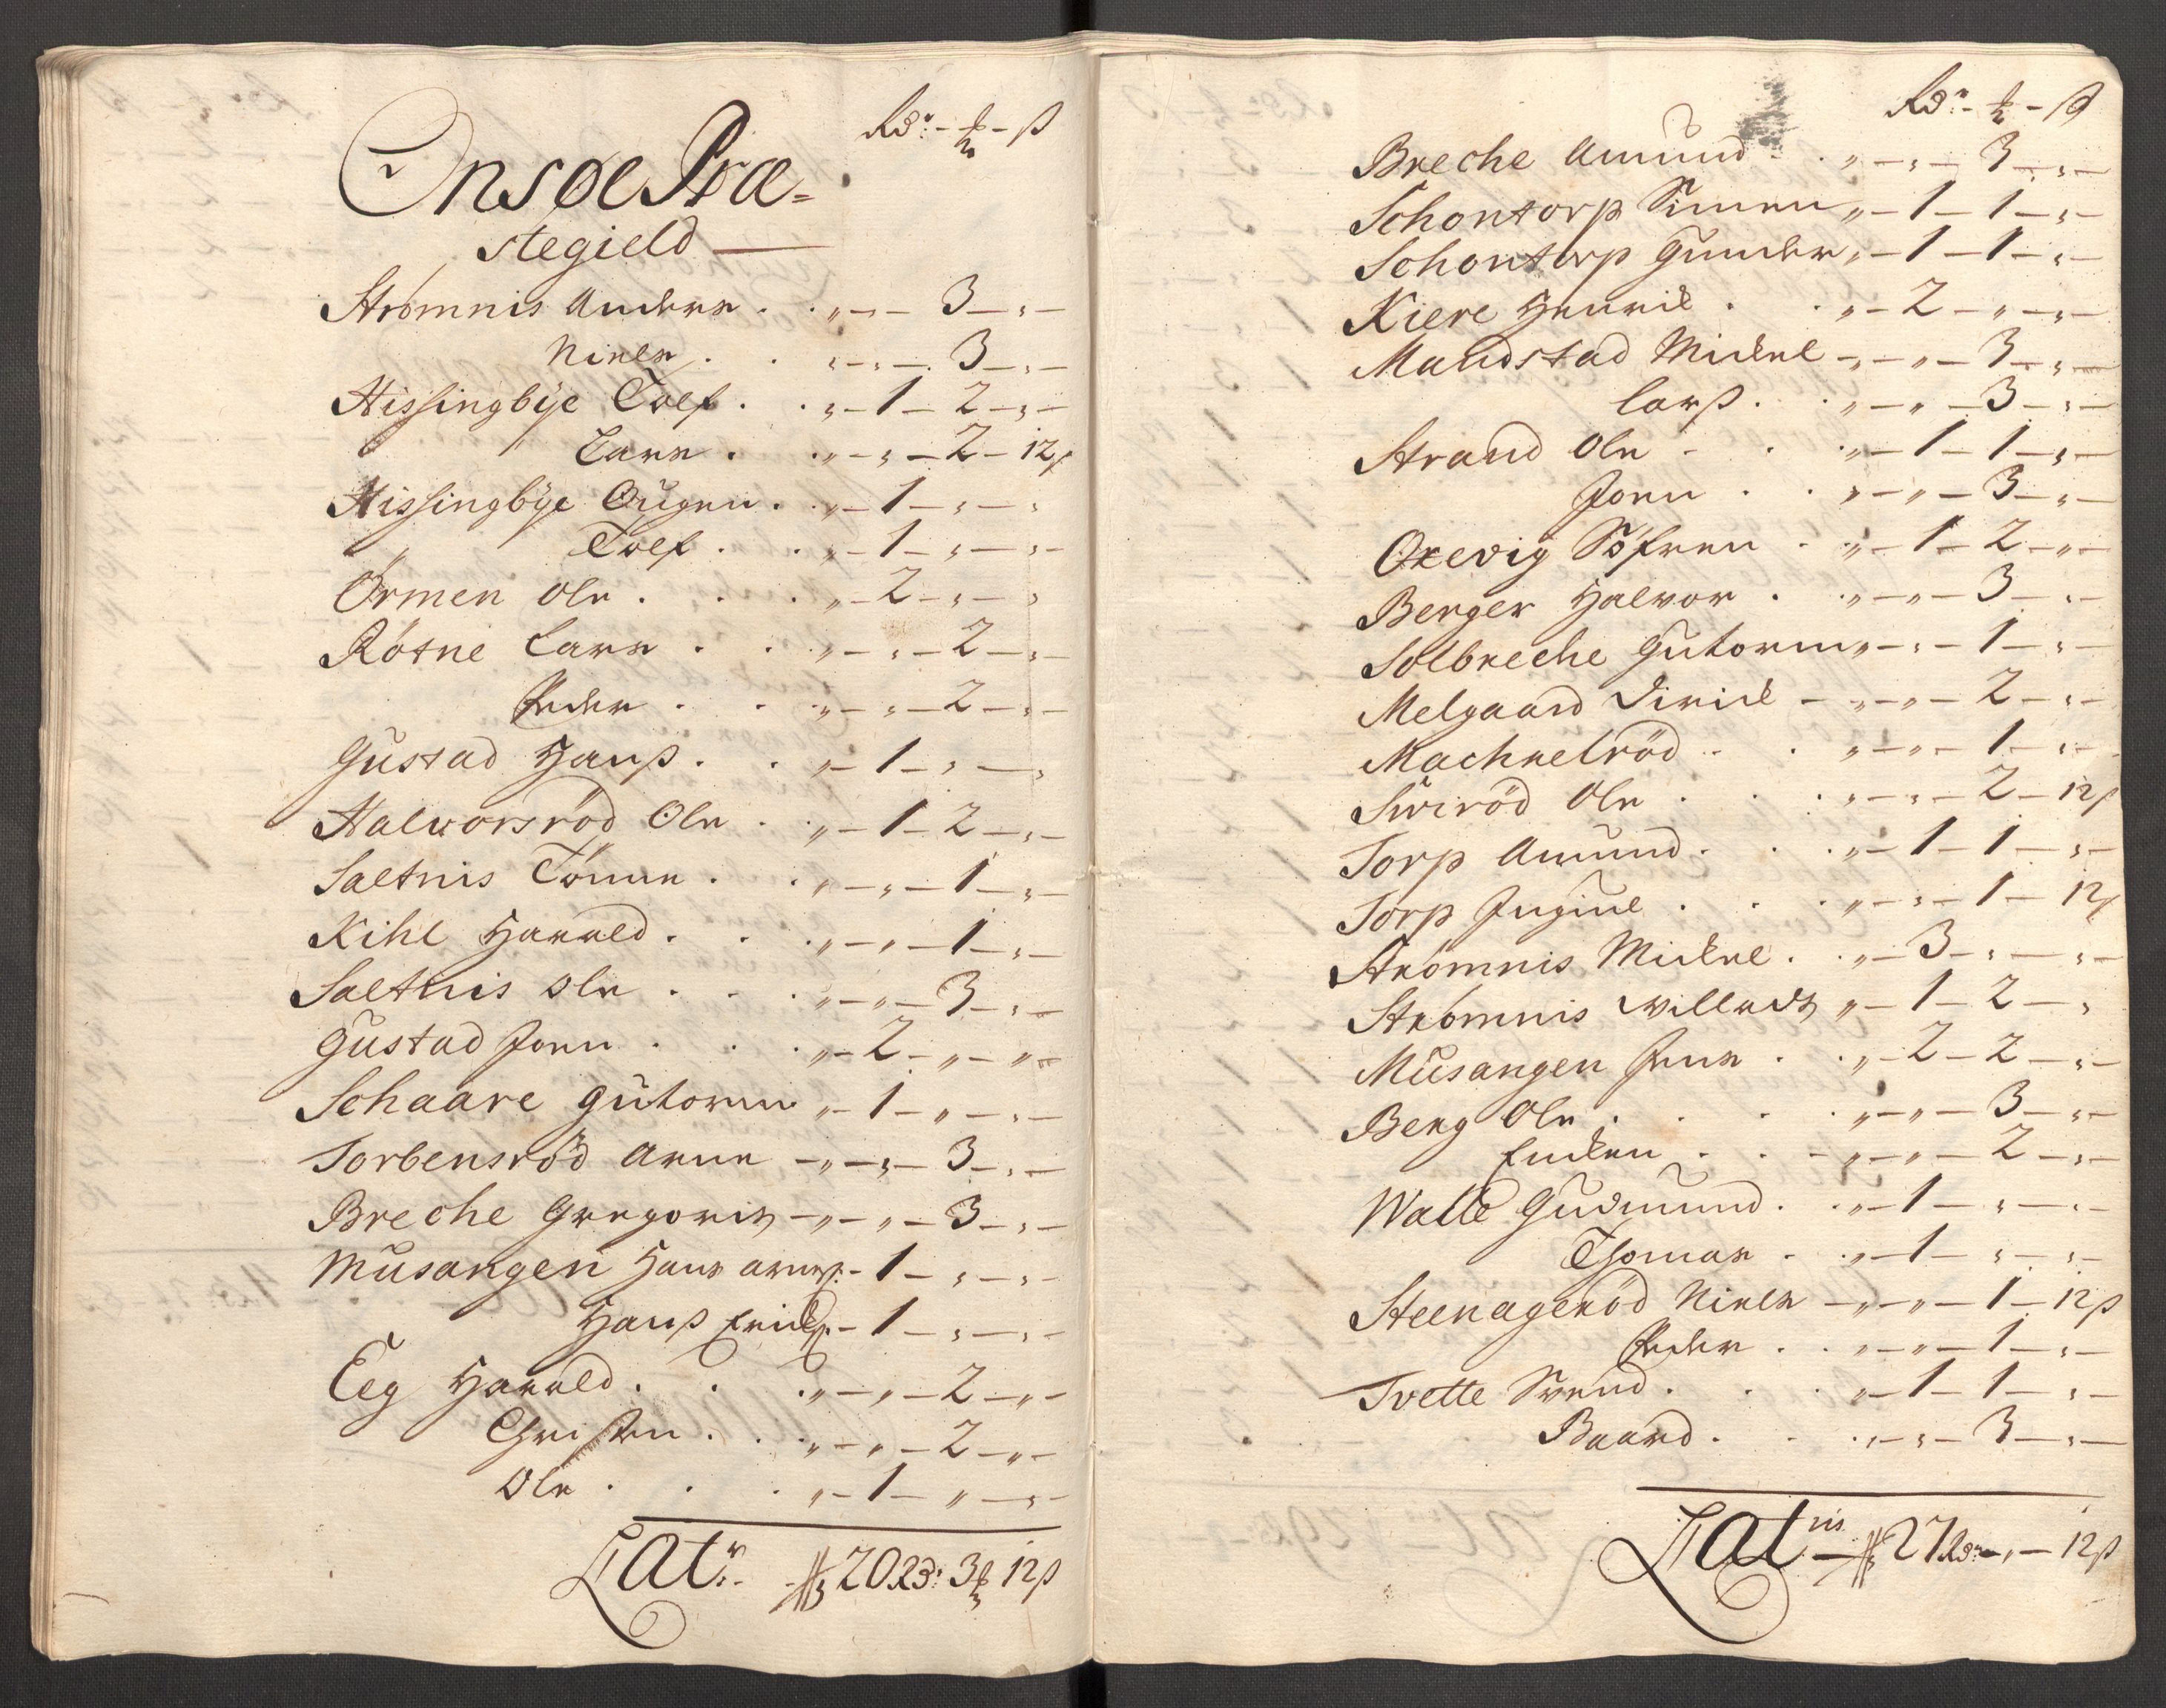 Rdr - ƶ - ß
Onsøe Præ=
stegield
Strömnis Anders . . „ - - 3 - „ -
Niels . . „ - „ - 3 - „ -
Hissingbÿe Tolf . . „ - 1 - 2 - „ -
Lars . . „ - „ - 2 - 12ß
Hissingbÿe Ougen . „ - 1 - „ - „
„ Tolf . . „ - 1 - „ - „ -
Örmen Ole . . . „ - 2 - „ - „
Rötne Lars . . „ - „ - 2 - „ -
Peder . . „ - „ - 2 - „ -
Gustad Hanß . . „ - 1 - „ - „
Halworsröd Ole . „ - 1 - 2 - „ -
Saltnis Tönne . . „ - „ - 1 - „ -
Kihl Harald . . . „ - „ - 1 - „ -
Saltnis Ole . . . „ - „ - 3 - „ -
Gustad Joen . . . „ - 2 - „ - „ -
Schaare Gutorm „ - 1 - „ - „ -
Torbensröd Arne - „ - „ - 3 - „ -
Breche Gregoris - „ - „ - 3 - „ -
Musangen Hans arnes: - 1 - „ - „ -
Hanß Erichs: - 1 - „ - „ -
Eeg Harald . . . „ - „ - 2 - „ -
Christen . . „ - „ - 2 - „ -
Ole . . . „ - 1 - „ - „ -
Latr. - 20 Rdr: 3ƶ 12ß
Rdr: - ƶ - ß
Breche Amund . . „ - „ - 3 - „ -
Schontorp Simen „ - 1 - 1 - „ -
Schontorp Gunder „ - 1 - 1 - „ -
Kiere Henrik . . „ - 2 - „ - „ -
Maudstad Mickel - „ - „ - 3 - „ -
Larß . . „ - „ - 3 - „ -
Strand Ole - . „ - 1 - 1 - „ -
Joen . . „ - „ - 3 - „ -
Oxevig Söfren . „ - 1 - 2 - „ -
Berger Halvor . . „ - „ - 3 - „ -
Solbreche Gutorm „ - „ - 1 - „ -
Melgaard Dirick - „ - „ - 2 - „ -
Machrelröd . . „ - „ - 1 - „ -
Suiröd Ole . . . „ - „ - 2 - 12ß
Torp Amund . . . „ - 1 - 1 - „ -
Torp Jugiul . . . „ - „ - 1 - 12ß
Strömnis Mickel . . „ - 3 - „ - „ -
Strömnis Willads „ - 1 - 2 - „
Musangen Jens . . „ - 2 - 2 - „ -
Berg Ole . . . „ - „ - 3 - „ -
Encken . . - „ - „ - 2 - „ -
Walle Gudmund . . „ - 1 - „ - „ -
Thomas . . „ - 1 - „ - „ -
Steenageröd Niels - „ - „ - 1 - 12ß
Peder . . „ - „ - 1 - „ -
Tvette Svend . . . „ - 1 - 1 - „ -
Baard . . . „ - „ - 3 - „ -
Latris - 27 Rdr: - „ - 12ß